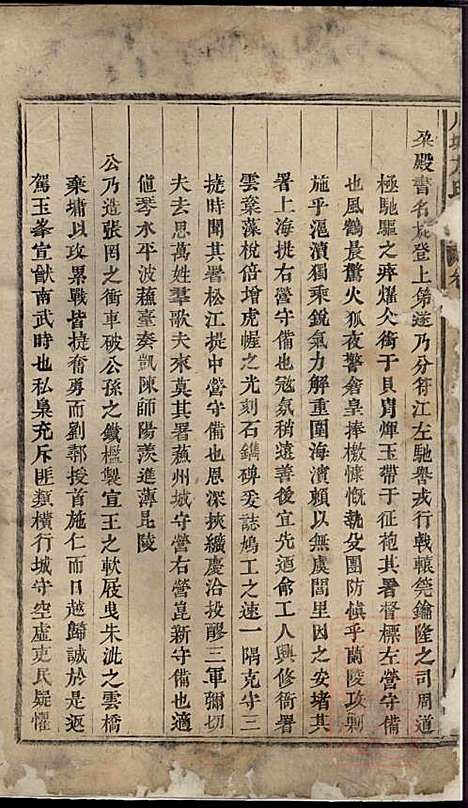 殿書名堠登上第遂乃分符江左馳譽戎行戟轅筦鑰隆之司周道
極馳驅之瘁燦火銜于貝冑輝玉帶于征袍其署督標左營守備
也風鶴晨驚火狐夜警會皇捧檄慷慨執殳團防慎乎蘭陵攻剿
施乎滬瀆獨乘銳氣力解重圍海濱賴以無虞閭里因之安堵其
署上海提右營守備也寇氛稍遠善後宜先遁龠工人興修衙署
雲蔂藻梲倍增虎幄之光刻石鐫碑爰誌鳩工之速一隅克守三
捷時聞其署松江提中營守備也恩深挾纊慶洽投醪三軍彌切
夫去思萬姓羣歌夫來莫其署蘇州城守營右營崑新守備也適
値琴水平波蘓臺奏凱陳師陽羨進薄毘陵
公乃造張罔之衝車破公孫之鐵檻製宣王之軟屐曳朱泚之雲橋
乘墉以攻累戰皆捷奮勇而劉鄩授首施仁而日越歸誠於是返
駕玉峯宣猷南武時也私梟充斥匪類橫行城守空虛吏民疑懼